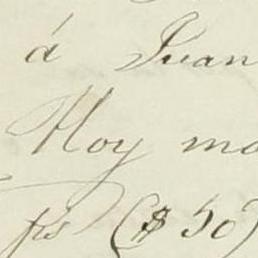 á Juan
Hoy ma
ps ($50)